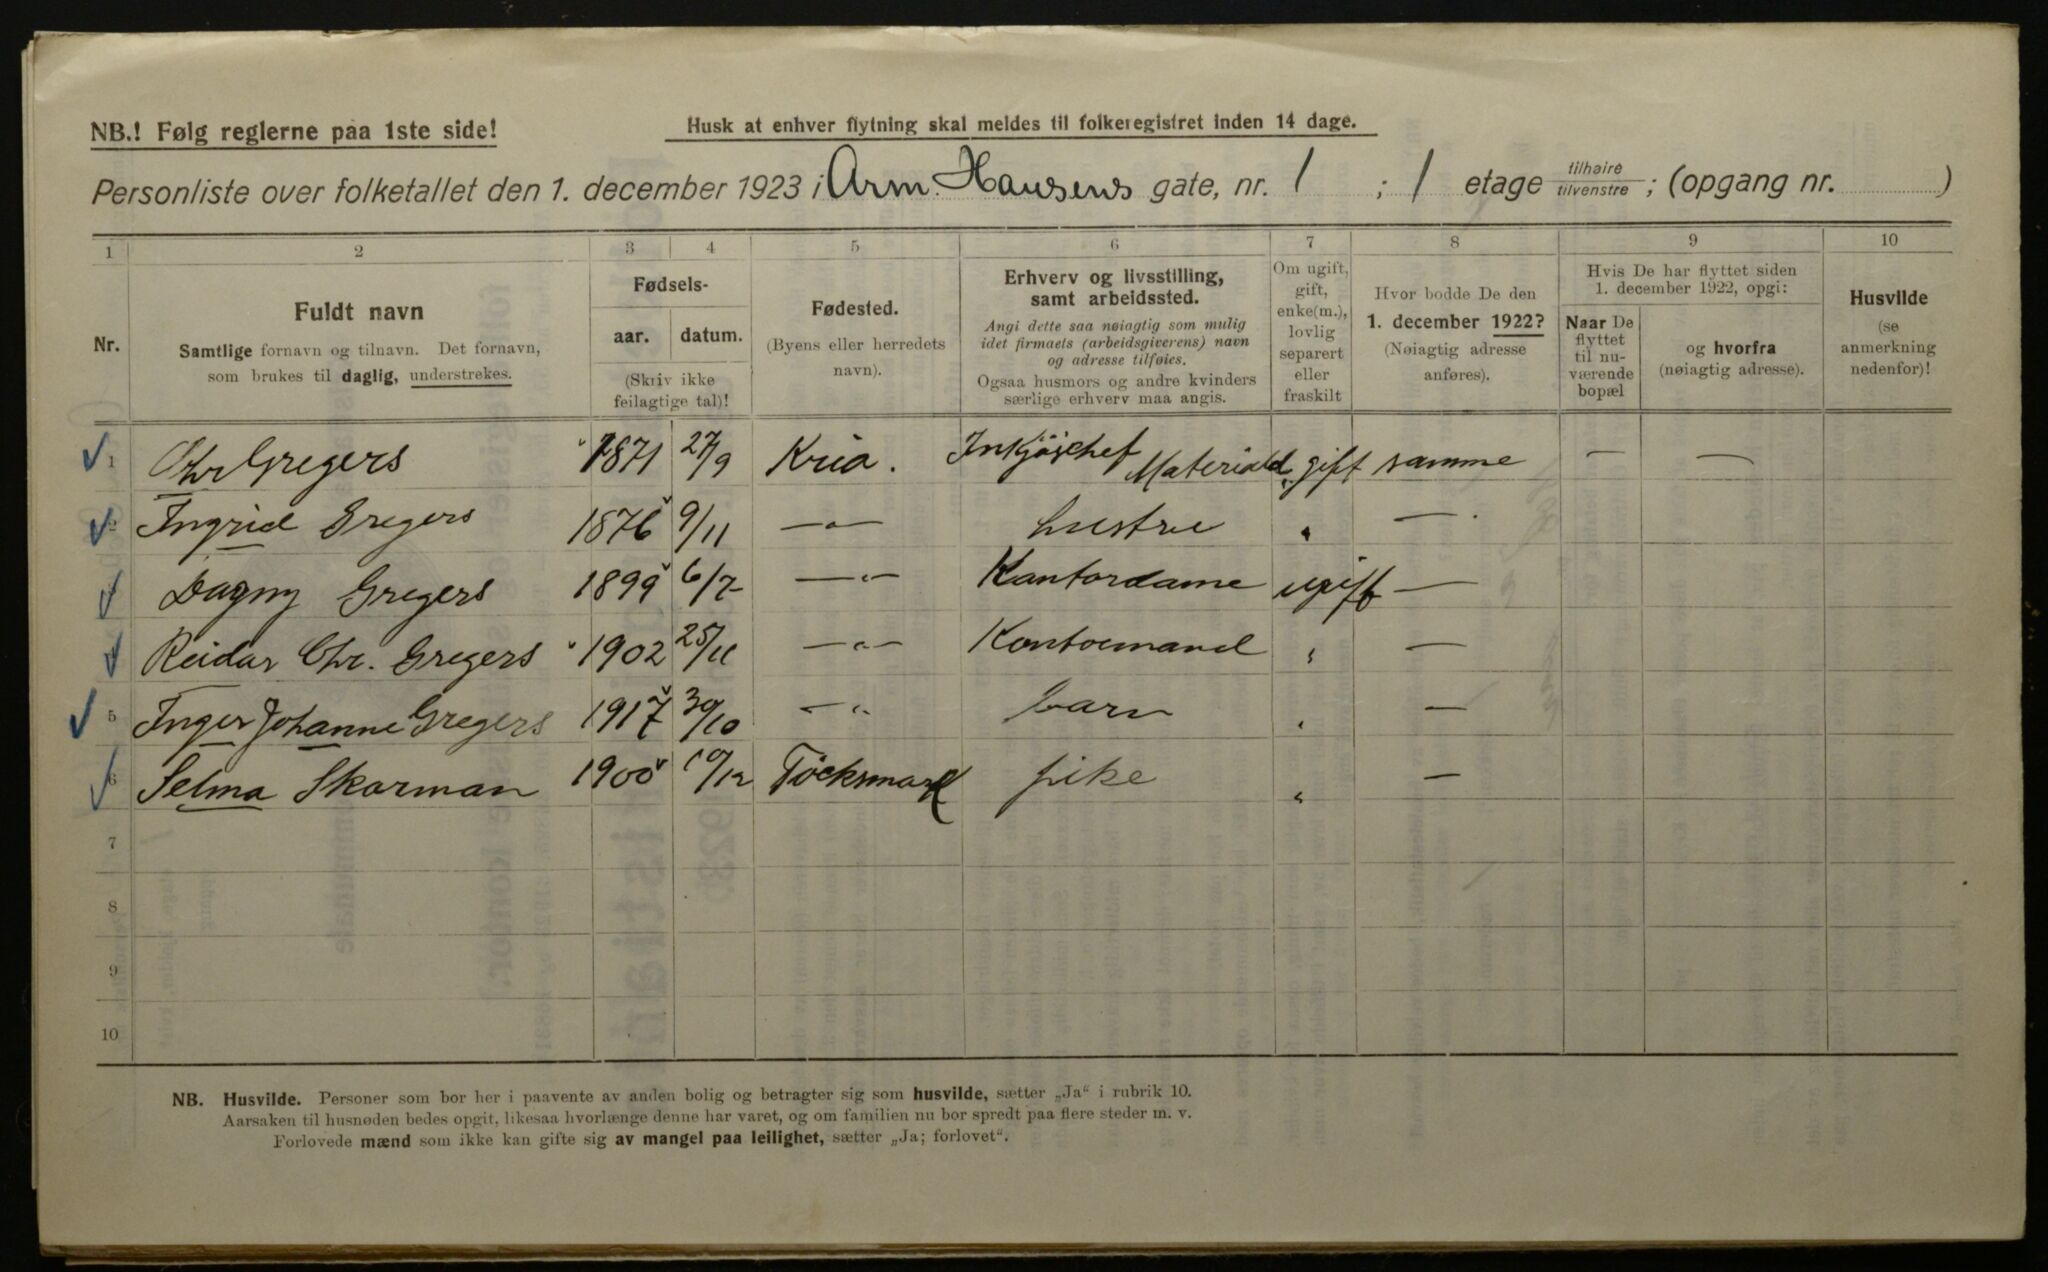 NB.! Følg reglerne paa 1ste side!
Husk at enhver flytning skal meldes til folkeregistret inden 14 dage.
Personliste over folketallet den 1. december 1923 i Arm. Hansens gate, nr. 1 ; 1 etage tilhøire/tilvenstre ; (opgang nr. )
1 2 3 4 5 6 7 8 9 10
Nr.
Fuldt navn
Samtlige fornavn og tilnavn. Det fornavn,
som brukes til daglig, understrekes.
Fødsels-
aar. datum.
(Skriv ikke
feilagtige tal)!
Fødested.
(Byens eller herredets
navn).
Erhverv og livsstilling,
samt arbeidssted.
Angi dette saa nøiagtig som mulig
idet firmaets (arbeidsgiverens) navn
og adresse tilføies.
Ogsaa husmors og andre kvinders
særlige erhverv maa angis.
Om ugift,
gift,
enke(m.),
lovlig
separert
eller
fraskilt
Hvor bodde De den
1. december 1922?
(Nøiagtig adresse
anføres).
Hvis De har flyttet siden
1. december 1922, opgi:
Naar De
flyttet
til nu-
værende
bopæl
og hvorfra
(nøiagtig adresse).
Husvilde
(se
anmerkning
nedenfor)!
1 Chr Gregers 1871 27/9 Kria. Inkjøpschef Materiald. gift samme — —
2 Ingrid Gregers 1876 9/11 —„— hustru „ —
3 Dagny Gregers 1899 6/7 —„— Kontordame ugift —
4 Reidar Chr. Gregers 1902 25/11 —„— Kontormand „ —
5 Inger Johanne Gregers 1917 30/10 —„ barn „ —
6 Selma Skarman 1900 10/12 Töcksmark pike „ —
7
8
9
10
NB. Husvilde. Personer som bor her i paavente av anden bolig og betragter sig som husvilde, sætter „Ja“ i rubrik 10.
Aarsaken til husnøden bedes opgit, likesaa hvorlænge denne har varet, og om familien nu bor spredt paa flere steder m. v.
Forlovede mænd som ikke kan gifte sig av mangel paa leilighet, sætter „Ja; forlovet“.